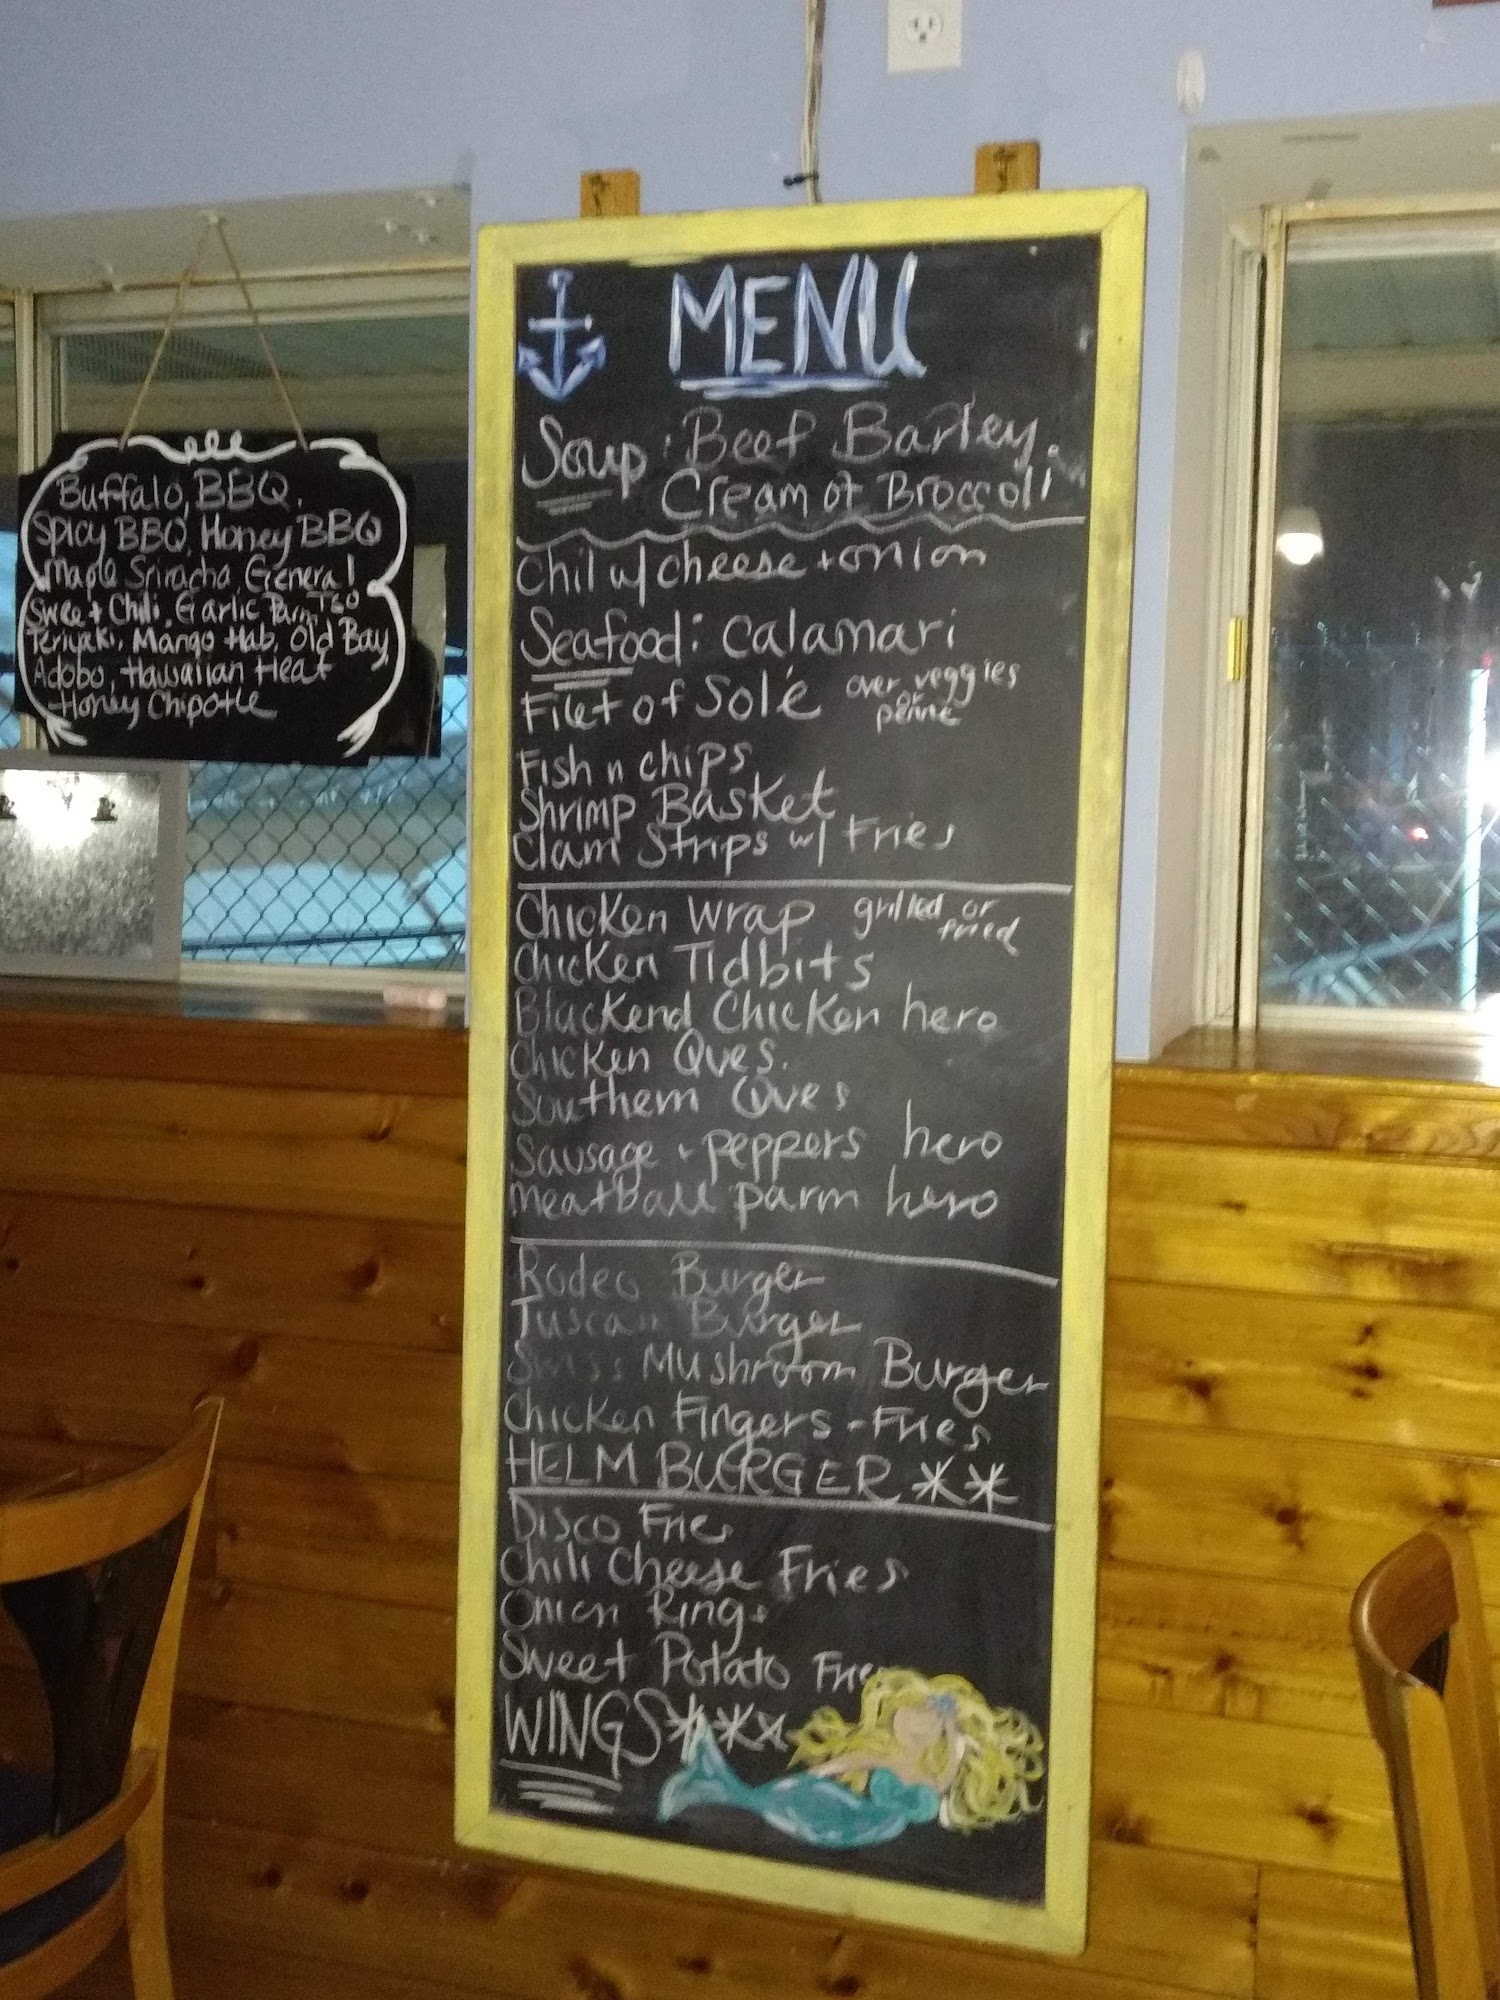 Buffalo, BBQ,
Spicy BBQ, Honey BBQ
Maple Sriracha, General
Sweet Chili, Garlic Parm, TSO
Teriyaki, Mango Hab, Old Bay,
Adobo, Hawaiian Heat
Honey Chipotle
MENU
Soup: Beef Barley.
Cream of Broccoli
Chil w/ cheese + onion
Seafood: Calamari
Filet of Solé over veggies
or
penne
Fish n chips
Shrimp Basket
Clam Strips w/ Fries
Chicken Wrap grilled or
fried
Chicken Tidbits
Blackend Chicken hero
Chicken Ques.
Southern Ques
Sausage + peppers hero
Meatball parm hero
Rodeo Burger
Tuscan Burger
Swiss Mushroom Burger
Chicken Fingers - Fries
HELM BURGER **
Disco Fries
Chili Cheese Fries
Onion Rings
Sweet Potato Frie
WINGS***